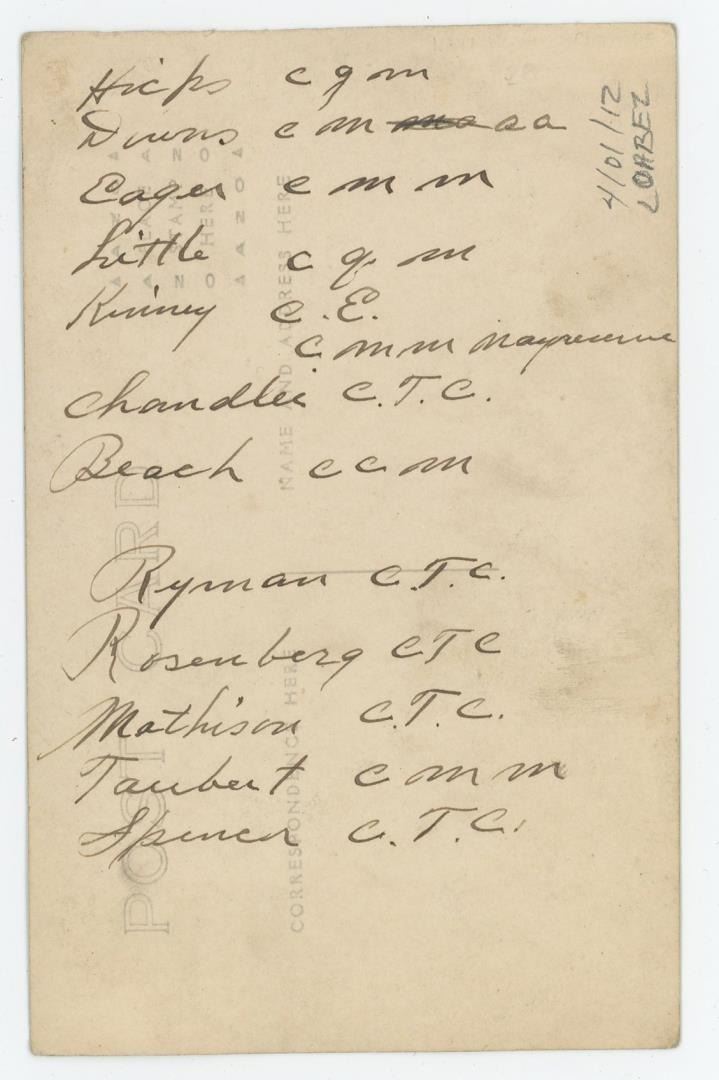 Hicks c g m
Downs c m m a a
Eager c m m
Little c g. m
Kinney C. E.
c m m
Chandler C. T. C.
Beach c c m
Ryman C. T. C.
Rosenberg C T C
Mathison C. T. C.
Taubert c m m
Spencer C. T. C.
4/01/12
LORBEZ
POST CARD
PLACE
STAMP
HERE
NAME AND ADDRESS HERE
CORRESPONDENCE HERE